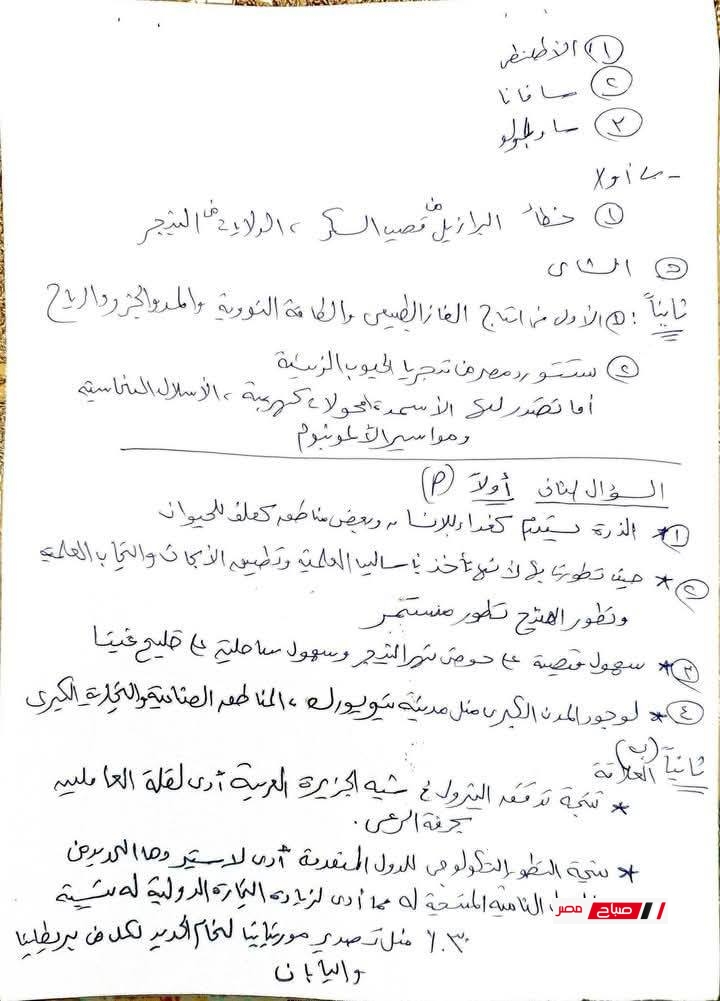 ① الأطلنطى
② سافانا
③ ساوباولو
① خطأ البرازيل فى قصب السكر ، الولايات فى البنجر
② الشاى
ثانياً : ① الأول من انتاج الغاز الطبيعى والطاقة النووية والمد والجزر والرياح
② ستتورد مصر من نيجريا الحبوب الزيتية
أما تصدر لها الأسمدة ، محولات كهربية ، الأسلاك النحاسية
ومواسير الألمونيوم
السؤال الثانى أولاً (م)
① * الذرة يستخدم كغذاء للإنسان وبعض مناطقه كعلف للحيوان
② * حيث تطورت بها لأنها تأخذ بأساليب العلمية وتطبيق الأبحاث والتجارب العلمية
وتطور الإنتاج تطور مستمر
③ * سهول فيضية على حوض نهر النيجر وسهول ساحلية على خليج غينيا
④ * لوجود المدن الكبرى مثل مدينة نيويورك ، المناطق الصناعية والتجارية الكبرى
ثانياً (ب) العلاقة
* نتيجة تدفق البترول فى شبه الجزيرة العربية أدى لقلة العاملين
بحرفة الرعى .
* نتيجة التطور التكنولوجى للدول المتقدمة أدى لاستيرادها الحديد من
النامية المنتجة له مما أدى لزيادة التجارة الدولية له بنسبة
٣٠٪ مثل تصدير موريتانيا لخام الحديد لكل من بريطانيا
واليابان
صباح مصر